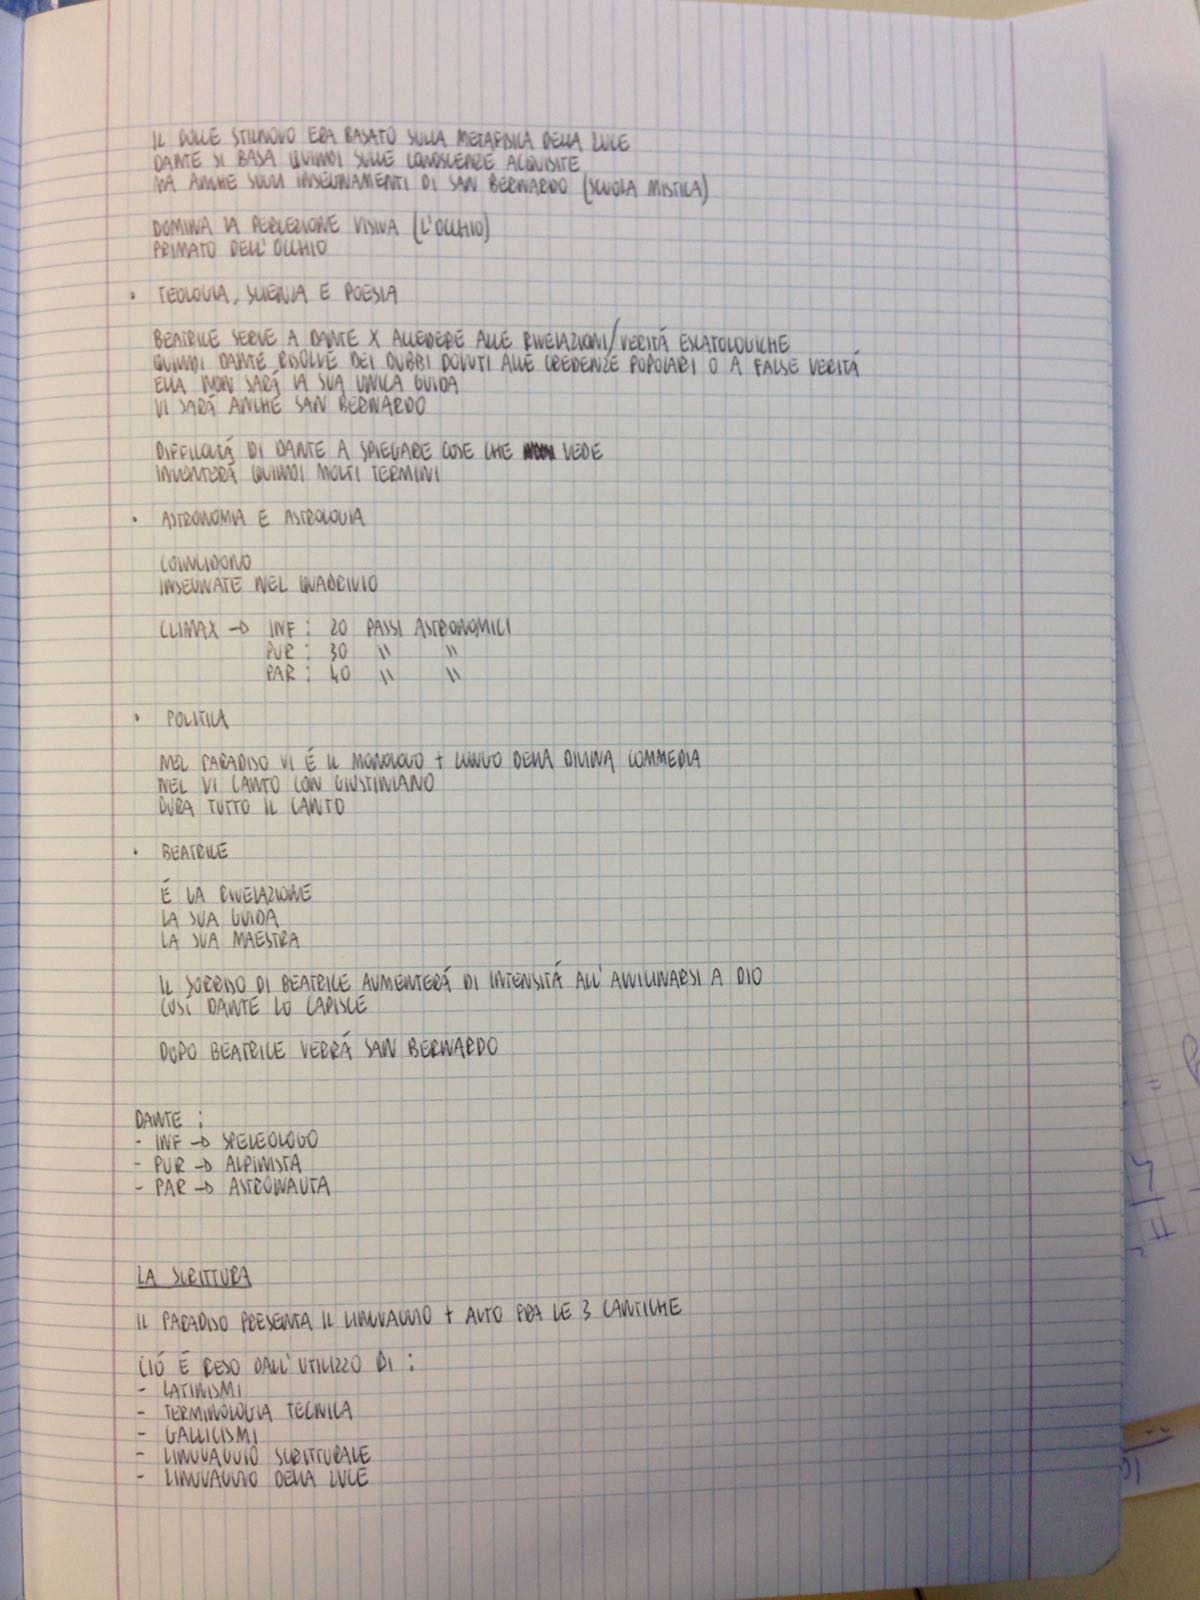 IL DOLCE STILNOVO ERA BASATO SULLA METAFISICA DELLA LUCE
DANTE SI BASA QUINDI SULLE CONOSCENZE ACQUISITE
MA ANCHE SUGLI INSEGNAMENTI DI SAN BERNARDO (SCUOLA MISTICA)
DOMINA LA PERCEZIONE VISIVA (L'OCCHIO)
PRIMATO DELL'OCCHIO
• TEOLOGIA, SCIENZA E POESIA
BEATRICE SERVE A DANTE X ACCEDERE ALLE RIVELAZIONI/VERITÁ ESCATOLOGICHE
QUINDI DANTE RISOLVE DEI DUBBI DOVUTI ALLE CREDENZE POPOLARI O A FALSE VERITÁ
ELLA NON SARÁ LA SUA UNICA GUIDA
VI SARÁ ANCHE SAN BERNARDO
DIFFICOLTÁ DI DANTE A SPIEGARE COSE CHE VEDE
INVENTERÁ QUINDI MOLTI TERMINI
• ASTRONOMIA E ASTROLOGIA
COINCIDONO
INSEGNATE NEL QUADRIVIO
CLIMAX → INF : 20 PASSI ASTRONOMICI
PUR : 30 " "
PAR : 40 " "
• POLITICA
NEL PARADISO VI É IL MONOLOGO + LUNGO DELLA DIVINA COMMEDIA
NEL VI CANTO CON GIUSTINIANO
DURA TUTTO IL CANTO
• BEATRICE
É LA RIVELAZIONE
LA SUA GUIDA
LA SUA MAESTRA
IL SORRISO DI BEATRICE AUMENTERÁ DI INTENSITÁ ALL'AVVICINARSI A DIO
COSÍ DANTE LO CAPISCE
DOPO BEATRICE VERRÁ SAN BERNARDO
DANTE :
- INF → SPELEOLOGO
- PUR → ALPINISTA
- PAR → ASTRONAUTA
LA SCRITTURA
IL PARADISO PRESENTA IL LINGUAGGIO + ALTO FRA LE 3 CANTICHE
CIÓ É RESO DALL'UTILIZZO DI :
- LATINISMI
- TERMINOLOGIA TECNICA
- GALLICISMI
- LINGUAGGIO SCRITTURALE
- LINGUAGGIO DELLA LUCE